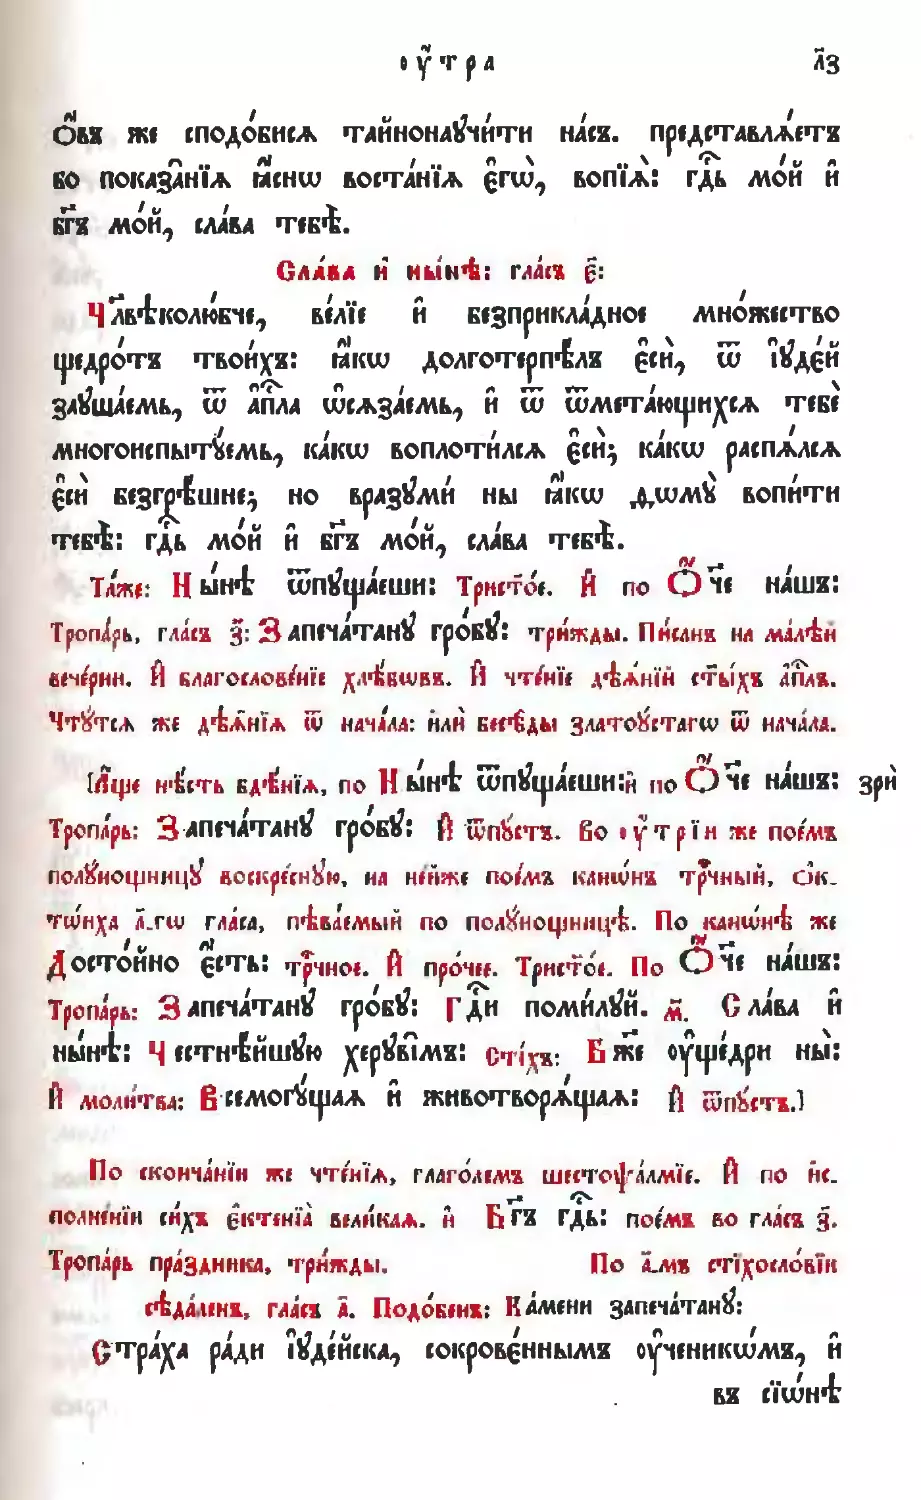 ᲂу҆́тра л҃з
Ѻ҆́въ же сподо́бисѧ тайнонаꙋчи́ти на́съ. представлѧ́етъ
бо показа̑нїѧ ꙗ҆́снѡ воста́нїѧ є҆гѡ̀, вопїѧ̀: гдⷭ҇ь мо́й и҆
бг҃ъ мо́й, сла́ва тебѣ̀.
Сла́ва и҆ ны́нѣ: гла́съ є҃:
Чл҃вѣколю́бче, ве́лїе и҆ безприкла́дное мно́жество
щедро́тъ твои́хъ: ꙗ҆́кѡ долготерпѣ́лъ є҆сѝ, ѿ і҆ꙋде́й
заꙋша́емь, ѿ а҆пⷭ҇ла ѡ҆сѧза́емь, и҆ ѿ ѿмета́ющихсѧ тебє̀
многоиспытꙋ́емь, ка́кѡ воплоти́лсѧ є҆сѝ; ка́кѡ распѧ́лсѧ
є҆сѝ безгрѣ́шне; но вразꙋмѝ ны ꙗ҆́кѡ ѳѡмꙋ̀ вопи́ти
тебѣ̀: гдⷭ҇ь мо́й и҆ бг҃ъ мо́й, сла́ва тебѣ̀.
Та́же: Ны́нѣ ѿпꙋща́еши: Трист҃о́е. И҆ по Ѻ҆́ч҃е на́шъ:
Тропа́рь, гла́съ з҃: Запеча́танꙋ гро́бꙋ: три́жды. Пи́санъ на ма́лѣй
вече́рни. И҆ благослове́нїе хлѣ́бѡвъ. И҆ чте́нїе дѣѧ́нїй ст҃ы́хъ а҆пⷭ҇лъ.
Чтꙋ́тсѧ же дѣѧ̑нїѧ ѿ нача́ла: и҆лѝ бесѣ̑ды златоꙋ́стагѡ ѿ нача́ла.
[А҆́ще нѣ́сть бдѣ́нїѧ, по Ны́нѣ ѿпꙋща́еши: и҆ по Ѻ҆́ч҃е на́шъ: зрѝ
Тропа́рь: Запеча́танꙋ гро́бꙋ: И҆ ѿпꙋ́стъ. Во ᲂу҆́трїи же пое́мъ
полꙋ́нощницꙋ воскре́снꙋю, на не́йже пое́мъ канѡ́нъ трⷪ҇чный, ѻ҆к-
тѡ́иха а҃-гѡ гла́са, пѣва́емый по полꙋ́нощницѣ. По канѡ́нѣ же
Досто́йно є҆́сть: трⷪ҇чное. И҆ про́чее. Трист҃о́е. По Ѻ҆́ч҃е на́шъ:
Тропа́рь: Запеча́танꙋ гро́бꙋ: Гдⷭ҇и поми́лꙋй. м҃. Сла́ва и҆
ны́нѣ: Честнѣ́йшꙋю херꙋві̑мъ: Сті́хъ: Бж҃е ᲂу҆ще́дри ны̀:
И҆ моли́тва: Всемогꙋ́щаѧ и҆ животворѧ́щаѧ: И҆ ѿпꙋ́стъ.]
По сконча́нїи же чте́нїѧ, глаго́лемъ шестоѱа́лмїе. И҆ по и҆с-
полне́нїи си́хъ є҆ктенїа̀ вели́каѧ. и҆ Бг҃ъ гдⷭ҇ь: пое́мъ во гла́съ з҃.
Тропа́рь пра́здника, три́жды. По а҃-мъ стїхосло́вїи
сѣда́ленъ, гла́съ а҃. Подо́бенъ: Ка́мени запеча́танꙋ:
Стра́ха ра́ди і҆ꙋде́йска, сокрове́ннымъ ᲂу҆ченикѡ́мъ, и҆
въ сїѡ́нѣ